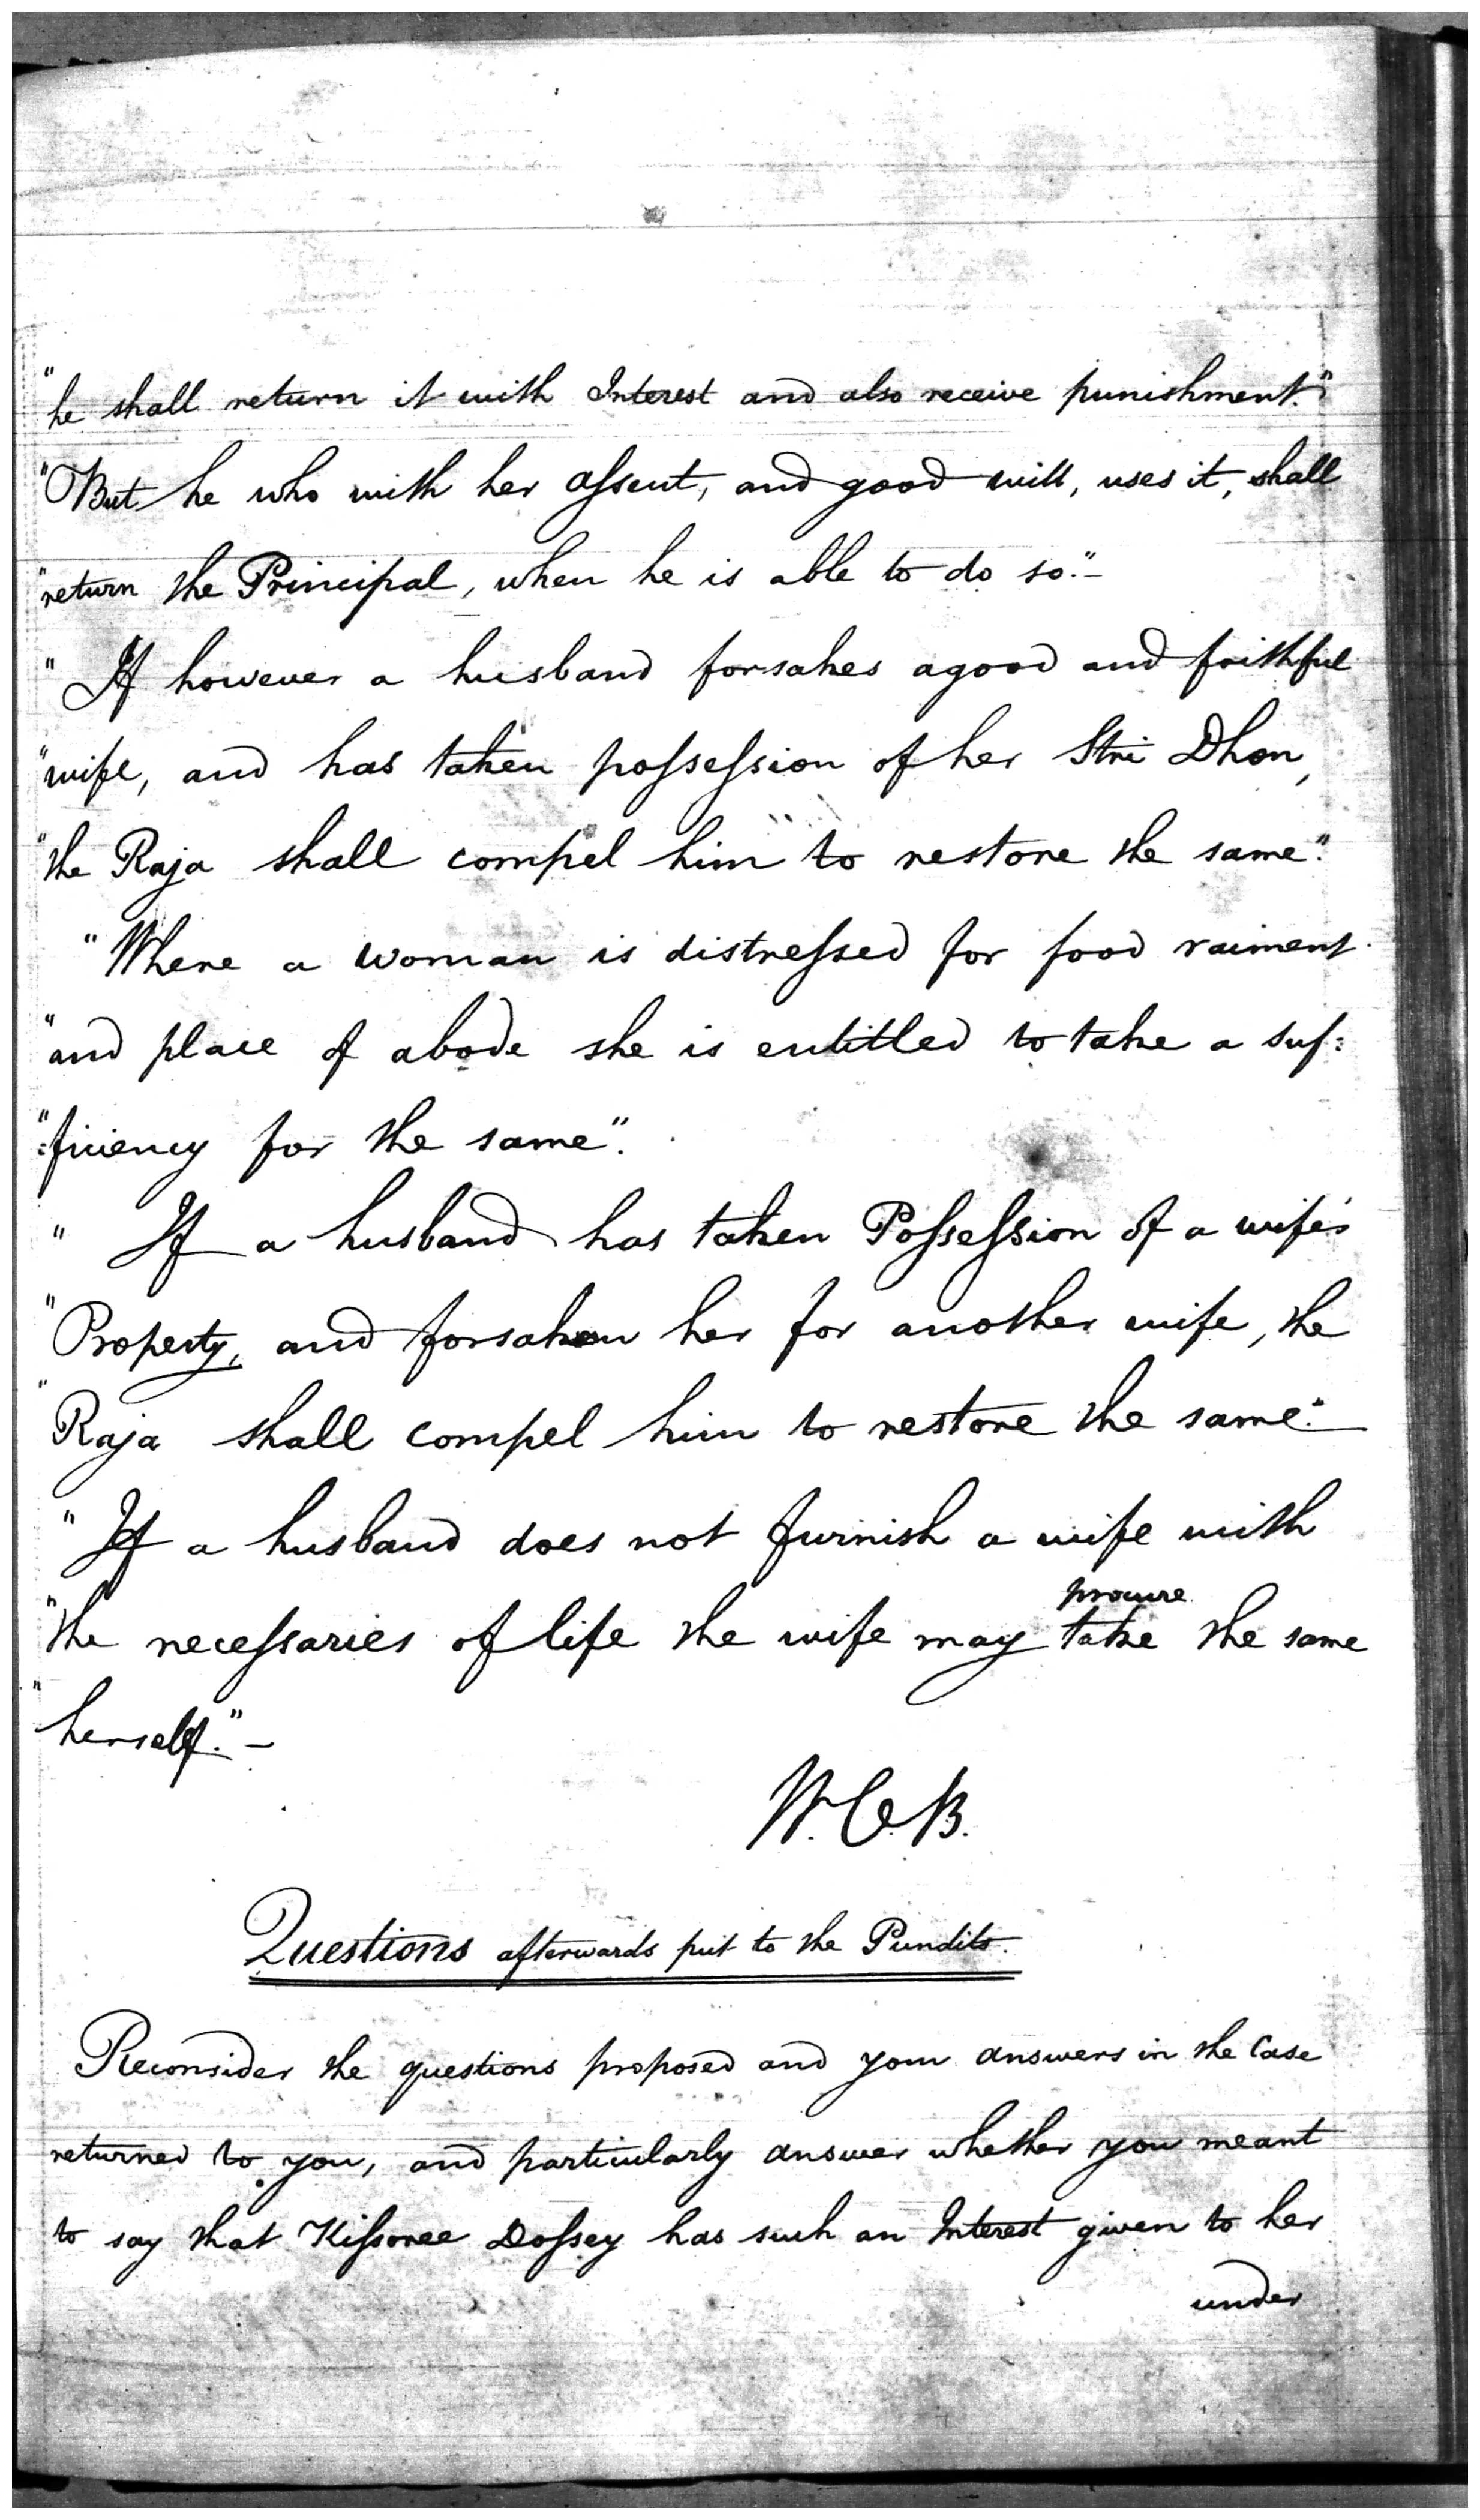 "he shall return it with Interest and also receive punishment."
"But he who with her aſsent, and good will, uses it, shall
"return the Principal, when he is able to do so."-
" If however a husband forsakes a good and faithful
"wife, and has taken poſseſsion of her Stri Dhon,
"the Raja shall compel him to restore the same."
"Where a woman is distreſsed for food raiment
"and place of abode she is entitled to take a suf=
"=ficiency for the same".
" If a husband has taken Poſseſsion of a wife's
"Property, and forsaken her for another wife, the
"Raja shall compel him to restore the same."
" If a husband does not furnish a wife with
procure
"the neceſsaries of life the wife may take the same
"herself."-
W.C.B.
Questions afterwards put to the Pundits.
Reconsider the questions proposed and your answers in the Case
returned to you, and particularly answer whether you meant
to say that Kiſsoree Doſsey has such an Interest given to her
under